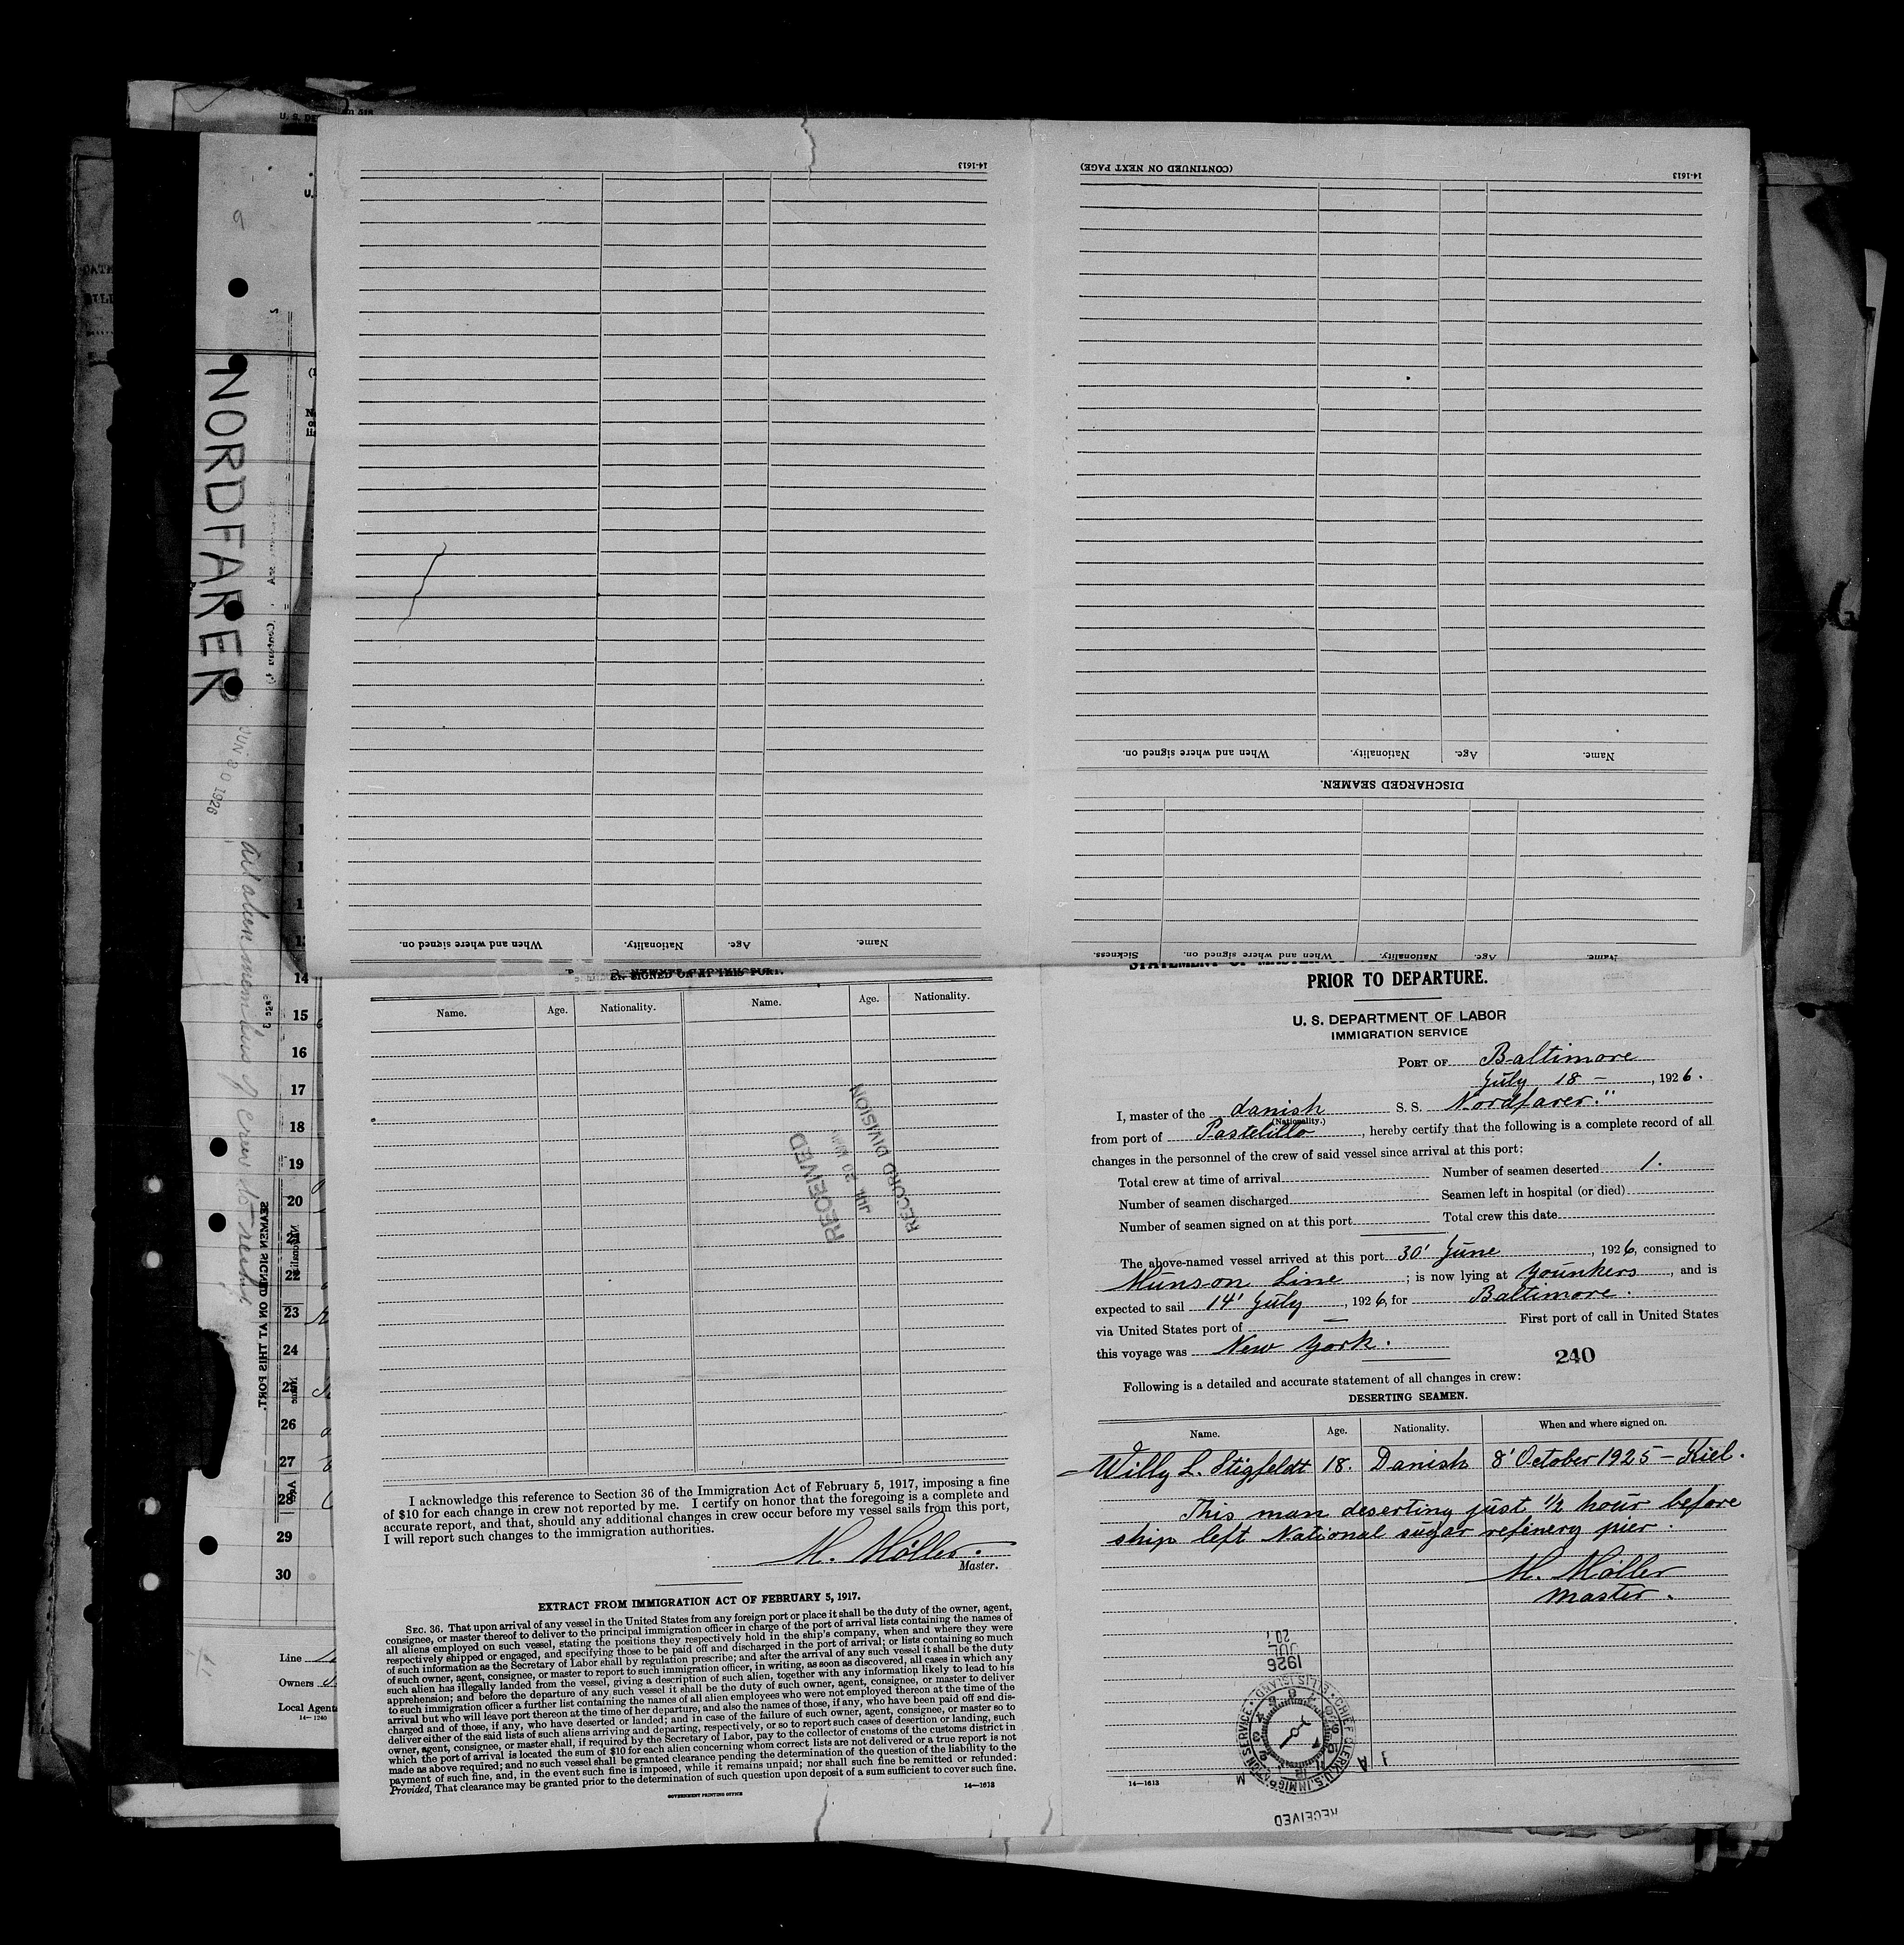 14-1613
(CONTINUED ON NEXT PAGE)
14-1613
NORDFARER
JUN 30 1926
When and where signed on.
Nationality.
Age.
Name.
DISCHARGED SEAMEN.
When and where signed on.
Nationality.
Age.
Name.
Sickness.
When and where signed on.
Nationality.
Age.
Name.
SIGNED ON AT THIS PORT.
Name.
Age.
Nationality.
Name.
Age.
Nationality.
RECEIVED
RECORD DIVISION
I acknowledge this reference to Section 36 of the Immigration Act of February 5, 1917, imposing a fine
of $10 for each change in crew not reported by me. I certify on honor that the foregoing is a complete and
accurate report, and that, should any additional changes in crew occur before my vessel sails from this port,
I will report such changes to the immigration authorities.
M. Möller.
Master.
EXTRACT FROM IMMIGRATION ACT OF FEBRUARY 5, 1917.
SEC. 36. That upon arrival of any vessel in the United States from any foreign port or place it shall be the duty of the owner, agent,
consignee, or master thereof to deliver to the principal immigration officer in charge of the port of arrival lists containing the names of
all aliens employed on such vessel, stating the positions they respectively hold in the ship's company, when and where they were
respectively shipped or engaged, and specifying those to be paid off and discharged in the port of arrival; or lists containing so much
of such information as the Secretary of Labor shall by regulation prescribe; and after the arrival of any such vessel it shall be the duty
of such owner, agent, consignee, or master to report to such immigration officer, in writing, as soon as discovered, all cases in which any
such alien has illegally landed from the vessel, giving a description of such alien, together with any information likely to lead to his
apprehension; and before the departure of any such vessel it shall be the duty of such owner, agent, consignee, or master to deliver
to such immigration officer a further list containing the names of all alien employees who were not employed thereon at the time of the
arrival but who will leave port thereon at the time of her departure, and also the names of those, if any, who have been paid off and dis-
charged and of those, if any, who have deserted or landed; and in case of the failure of such owner, agent, consignee, or master so to
deliver either of the said lists of such aliens arriving and departing, respectively, or so to report such cases of desertion or landing, such
owner, agent, consignee, or master shall, if required by the Secretary of Labor, pay to the collector of customs of the customs district in
which the port of arrival is located the sum of $10 for each alien concerning whom correct lists are not delivered or a true report is not
made as above required; and no such vessel shall be granted clearance pending the determination of the question of the liability to the
payment of such fine, and, in the event such fine is imposed, while it remains unpaid; nor shall such fine be remitted or refunded:
Provided, That clearance may be granted prior to the determination of such question upon deposit of a sum sufficient to cover such fine.
GOVERNMENT PRINTING OFFICE
14—1613
PRIOR TO DEPARTURE.
U. S. DEPARTMENT OF LABOR
IMMIGRATION SERVICE
PORT OF Baltimore
July 18 - , 1926.
I, master of the danish S. S. Nordfarer."
(Nationality.)
from port of Pastelillo, hereby certify that the following is a complete record of all
changes in the personnel of the crew of said vessel since arrival at this port:
Total crew at time of arrival
Number of seamen deserted 1.
Number of seamen discharged
Seamen left in hospital (or died)
Number of seamen signed on at this port
Total crew this date
The above-named vessel arrived at this port 30' June, 1926, consigned to
Munson Line; is now lying at Younkers, and is
expected to sail 14' July, 1926, for Baltimore.
via United States port of — First port of call in United States
this voyage was New York.
240
Following is a detailed and accurate statement of all changes in crew:
DESERTING SEAMEN.
Name. Age. Nationality. When and where signed on.
Willy L. Stigfeldt 18. Danish 8' October 1925 - Kiel.
This man deserting just 1/2 hour before
ship left National sugar refinery pier.
M. Möller
master.
JUL 20
1926
CHIEF CLERK, U.S. IMMIGRATION SERVICE ELLIS ISLAND
RECEIVED
14—1613
SEAMEN SIGNED ON AT THIS PORT.
14
15
16
17
18
19
20
21
22
23
24
25
26
27
28
29
30
Line
Owners
Local Agent
14—1240